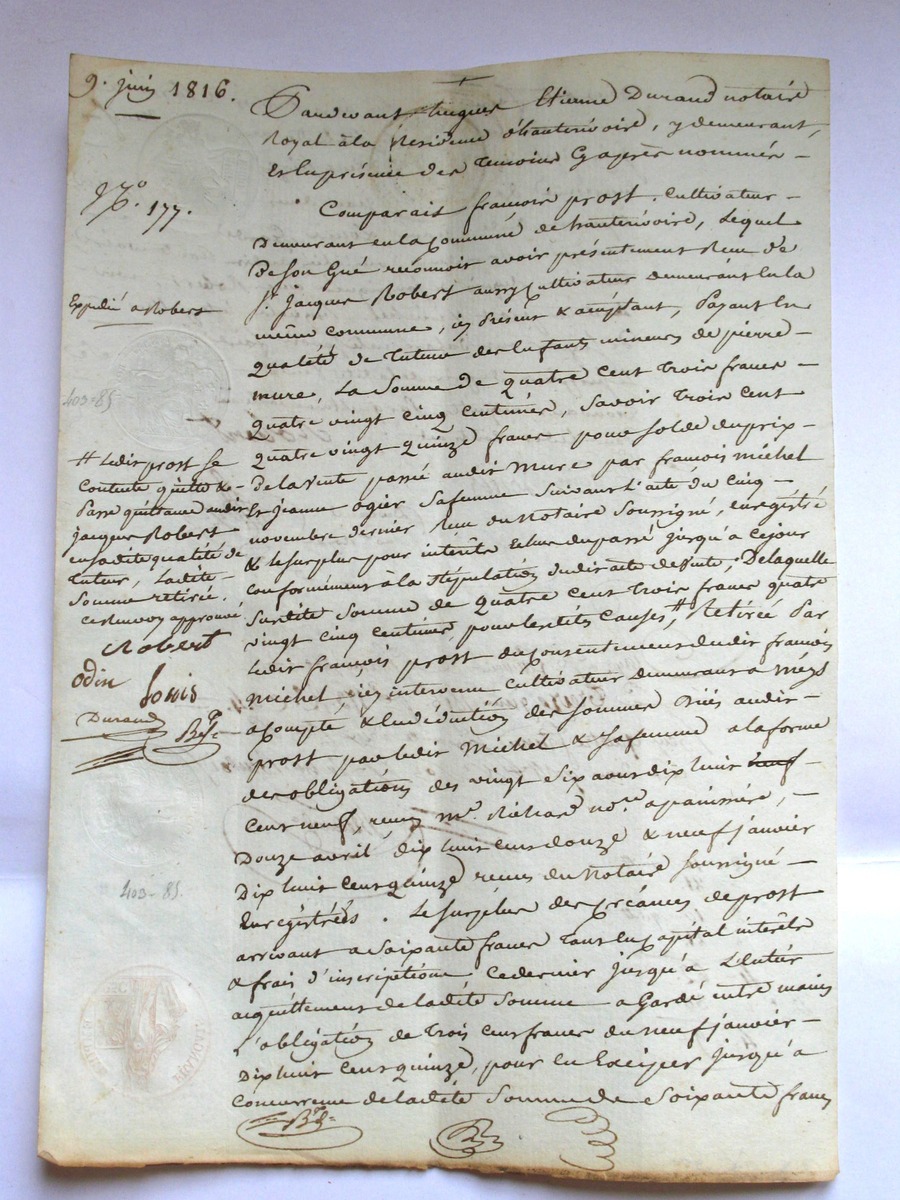 9. juin 1816.
Pardevant hugues Etienne Durand notaire
Royal à la Résidence d'hauterivoire, y demeurant,
et en présence des Temoins Cyaprès nommés –
N.o 177.
Comparait francois prost, Cultivateur –
Demeurant en la Commune de hauterivoire, Lequel
De son Gré reconnoit avoir présentement Reçu de
Expedié a Robert
Sr. jacques Robert aussy Cultivateur demeurant en la
même Commune, icy Présent & acceptant, Payant En
qualité de Tuteur des Enfants mineurs de pierre –
mure, La Somme de quatre Cent Trois francs –
403-85
quatre vingt Cinq Centimes, Savoir Trois Cent
quatre vingt quinze francs pour Solde du prix –
De la Vente passé audit mure par françois michel
& jeanne ogier Safemme Suivant l'acte du Cinq –
novembre dernier Reçu du Notaire Soussigné, enregistré
& le Surplus pour intérêts Echus du passé jusqu'à Cejour
Conformément à la Stipulation dudit acte de Vente ; De laquelle
Susdite Somme de quatre Cent Trois francs quatre
vingt Cinq Centimes pour lesdites Causes, # Retirée Par
# Ledit prost Se
Contente quitte & –
Passe quittance audit
jacques Robert
en sadite qualité de
Tuteur, Ladite –
Somme retirée.
ce Renvoy approuvé
Robert
odin Louis
Durand
Ledit françois prost du Consentement dudit françois
michel, icy intervenu Cultivateur demeurant a Méys
a Compte & Endéduction des Sommes Dües audit –
prost par Ledit Michel & Safemme alaforme
des obligations des vingt Six aout dix huit neuf –
Cent neuf, reçue Me. Richard nore. , –
Douze avril dix huit Cent douze & neuf janvier
Dix huit Cent quinze reçues du Notaire Soussigné –
Enregistrées. Le Surplus des Créances de prost
arrivant a Soixante francs Tous en Capital intérêts
& frais d'inscriptions Cedernier jusqu'à L'entier
acquittement de ladite Somme a Gardé entre mains
L'obligation de Trois Cent francs du neuf janvier –
Dix huit Cent quinze, pour en Exciper jusqu'à
Concurrence de ladite Somme de Soixante francs
403-85.